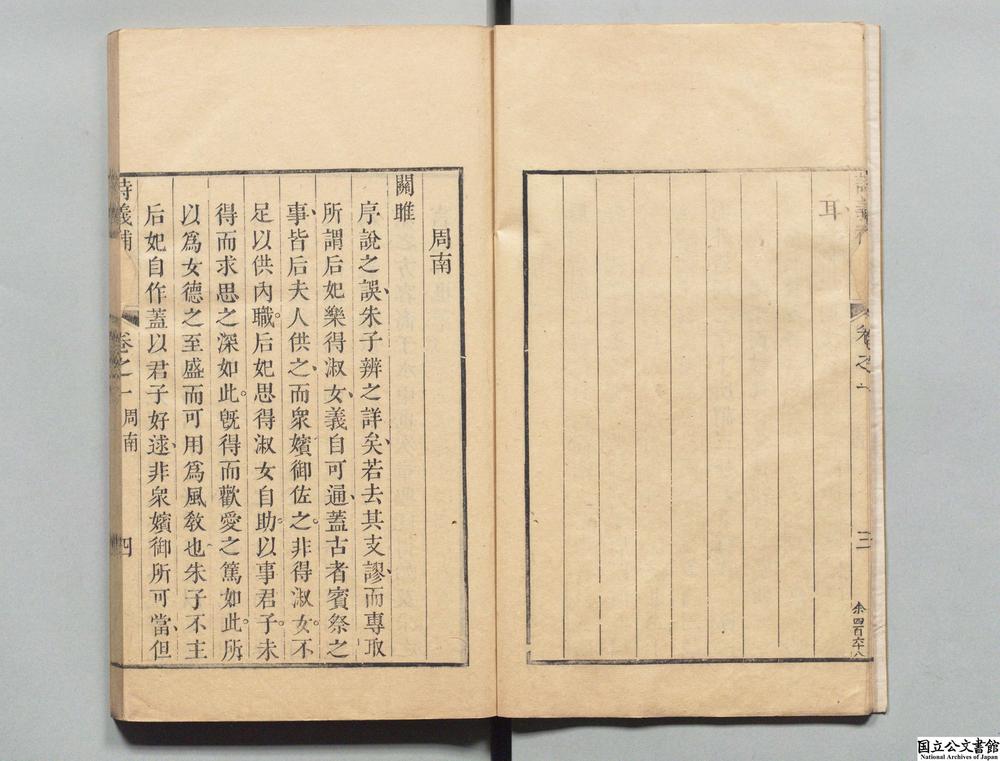 耳
三
周南
關雎
序說之誤朱子辨之詳矣若去其支謬而專取
所謂后妃樂得淑女義自可通蓋古者賓祭之
事皆后夫人供之而衆嬪御佐之非得淑女不
足以供內職后妃思得淑女自助以事君子未
得而求思之深如此旣得而歡愛之篤如此所
以爲女德之至盛而可用爲風敎也朱子不主
后妃自作蓋以君子好逑非衆嬪御所可當但
詩義補 卷之一 周南 四
国立公文書館
National Archives of Japan